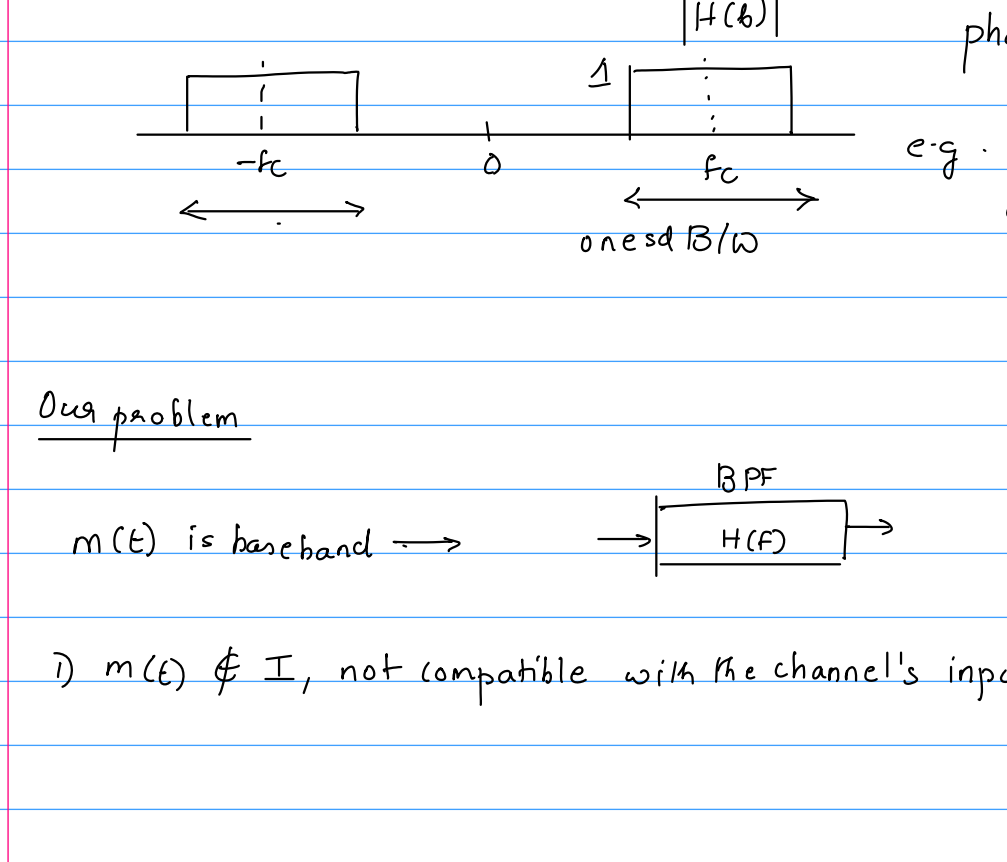 |H(b)|
pha
1
e.g.
-fc 0 fc
onesd B/W
Our problem
BPF
m(t) is baseband → → H(F) →
1) m(t) ∉ I, not compatible with the channel's inpu